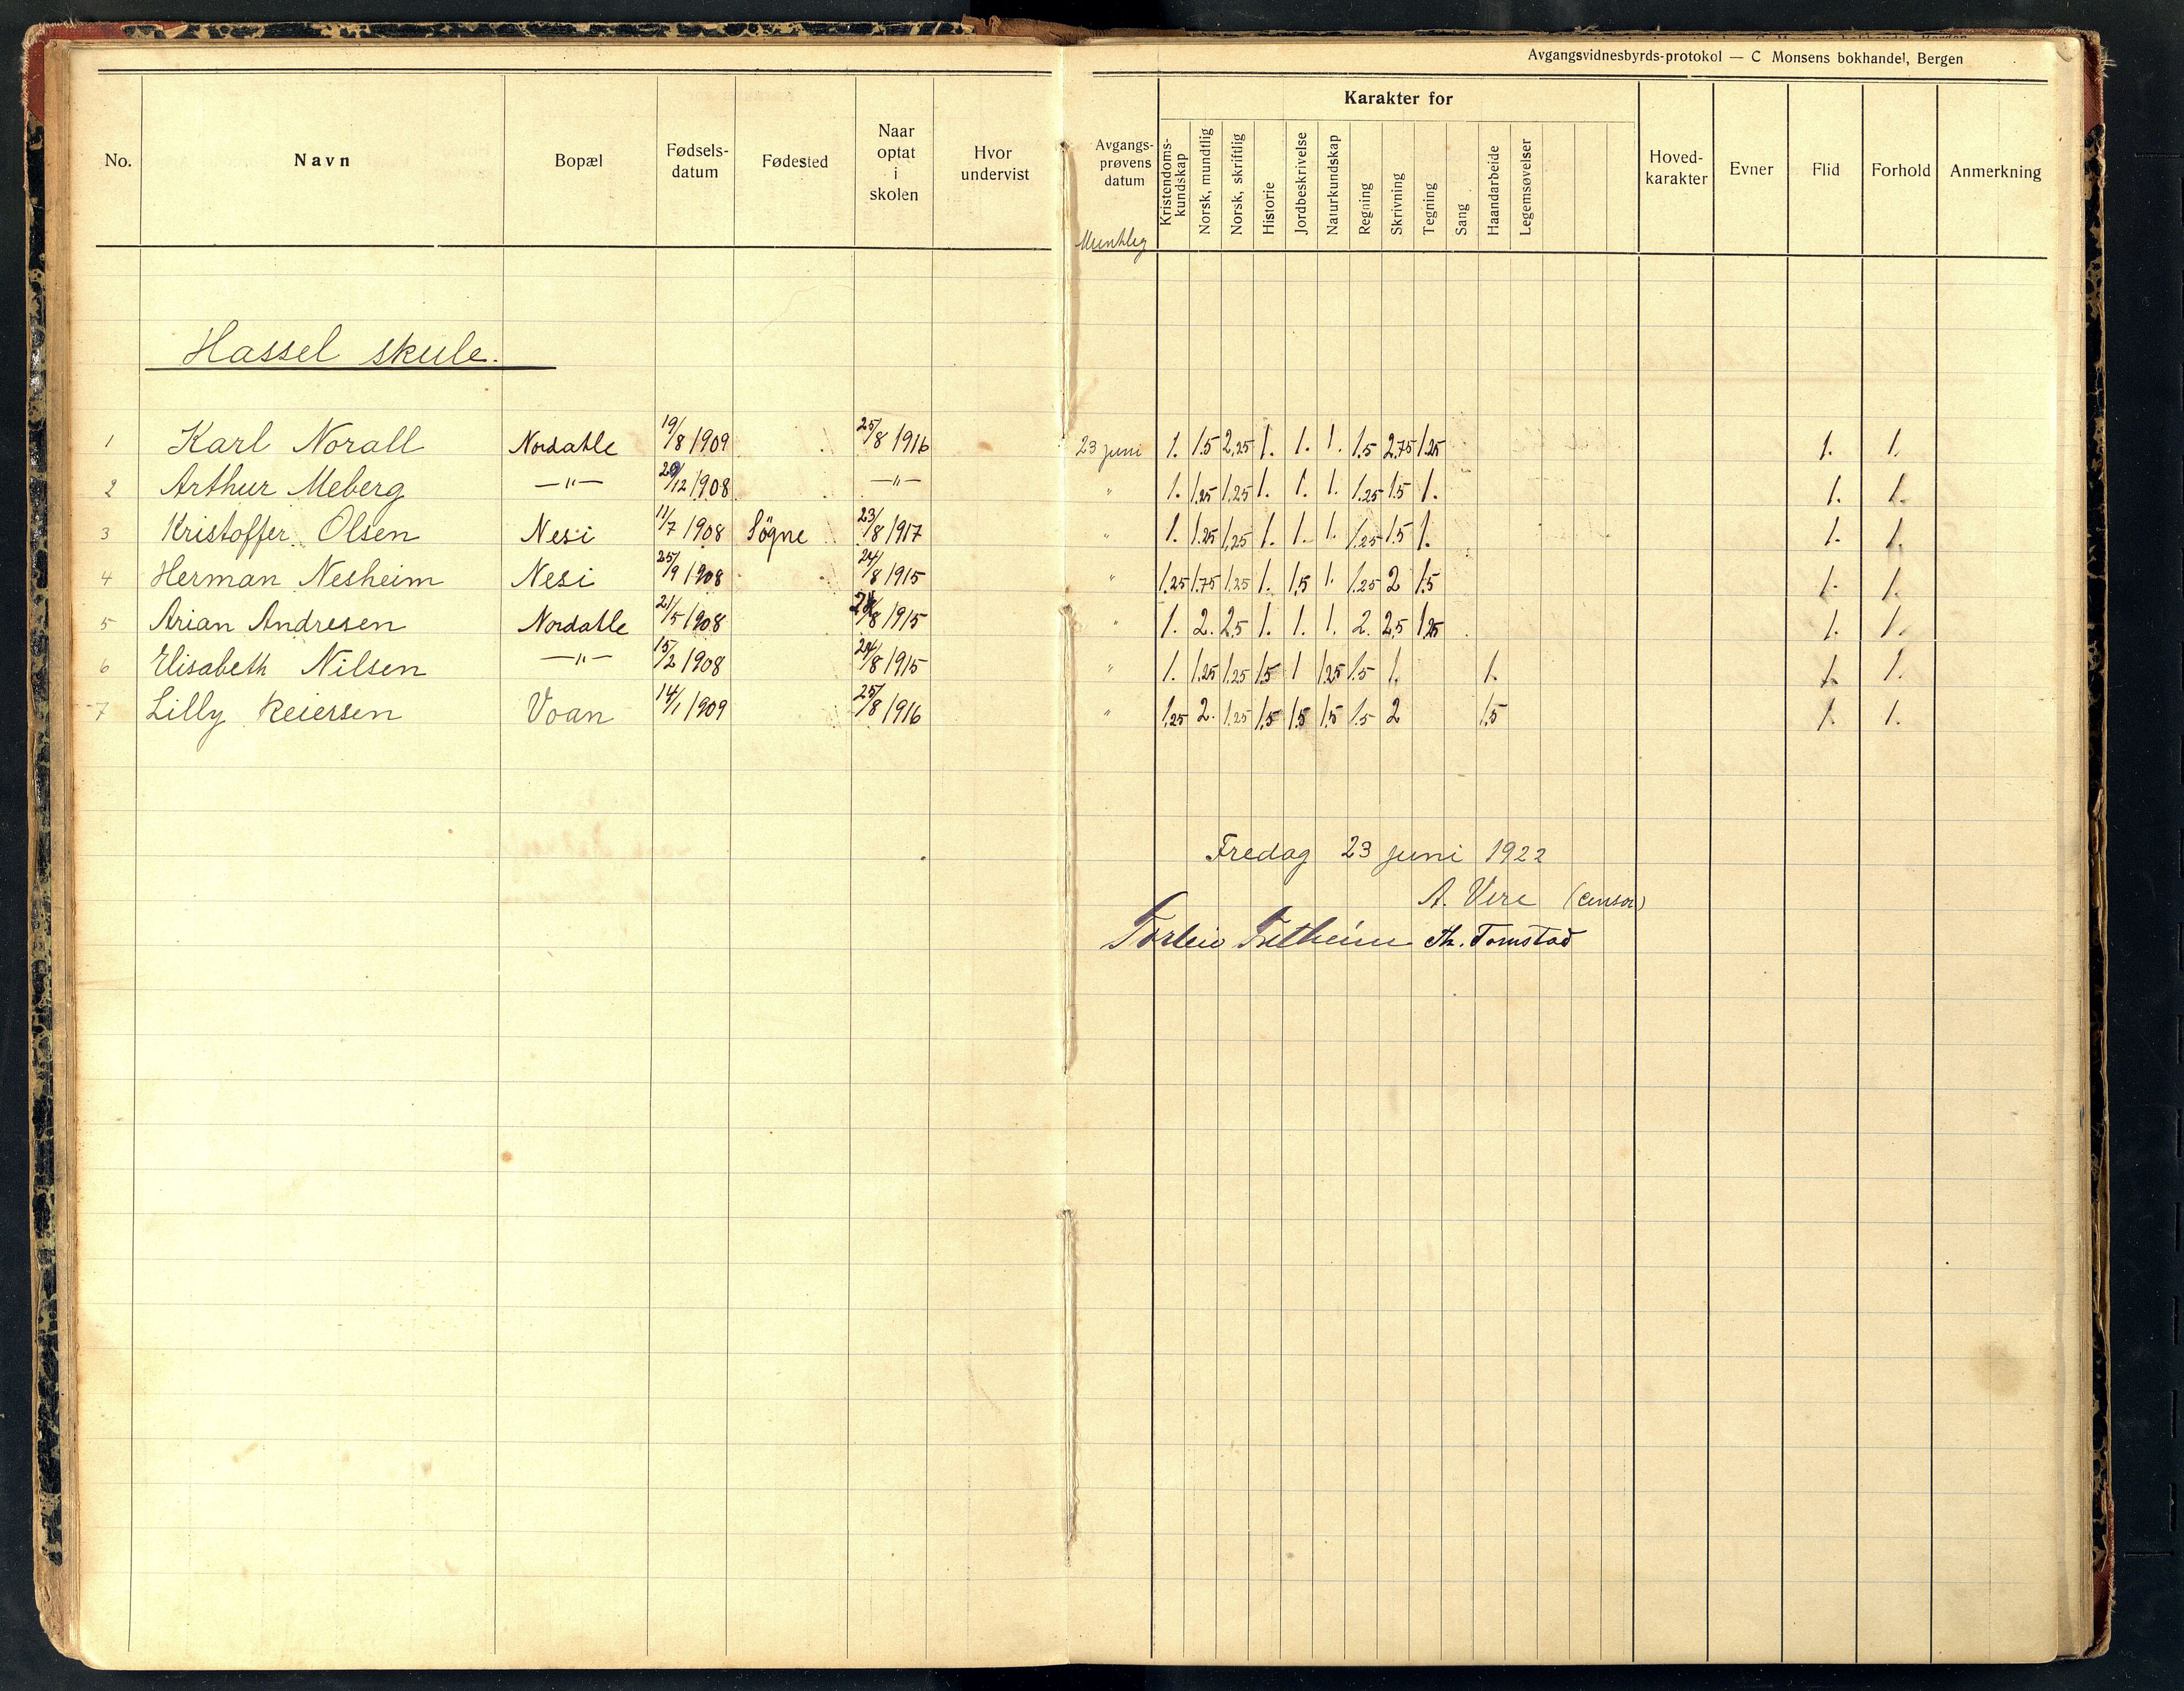 Avgangsvidnesbyrds-protokol — C Monsens bokhandel, Bergen
No. Navn Bopæl Fødsels-datum Fødested Naar optat i skolen Hvor undervist Avgangs-prøvens datum Karakter for Hoved-karakter Evner Flid Forhold Anmerkning
Kristendoms-kundskap Norsk, mundtlig Norsk, skriftlig Historie Jordbeskrivelse Naturkundskap Regning Skrivning Tegning Sang Haandarbeide Legemsøvelser
Hassel skule.
1 Karl Norall Nordatle 19/8 1909 25/8 1916 23 juni 1. 1.5 2,25 1. 1. 1. 1.5 2,75 1.25 1. 1.
2 Arthur Meberg —"— 20/12 1908 —"— " 1. 1.25 1,25 1. 1. 1. 1.25 1.5 1. 1. 1.
3 Kristoffer Olsen Nesi 11/7 1908 Søgne 23/8 1917 " 1. 1.25 1,25 1. 1. 1. 1.25 1.5 1. 1. 1.
4 Herman Nesheim Nesi 25/9 1908 24/8 1915 " 1.25 1.75 1.25 1. 1,5 1. 1.25 2 1.5 1. 1.
5 Arian Andresen Nordatle 21/5 1908 24/8 1915 " 1. 2. 2,5 1. 1. 1. 2. 2,5 1.25 1. 1.
6 Elisabeth Nilsen —"— 15/2 1908 24/8 1915 " 1. 1.25 1.25 1.5 1 1.25 1.5 1. 1. 1. 1.
7 Lilly Reiersen Voan 14/1 1909 25/8 1916 " 1,25 2. 1.25 1.5 1.5 1.5 1.5 2 1,5 1. 1.
Fredag 23 juni 1922
A. Vere (censor)
Torleiv Tretheim Th. Tomstad